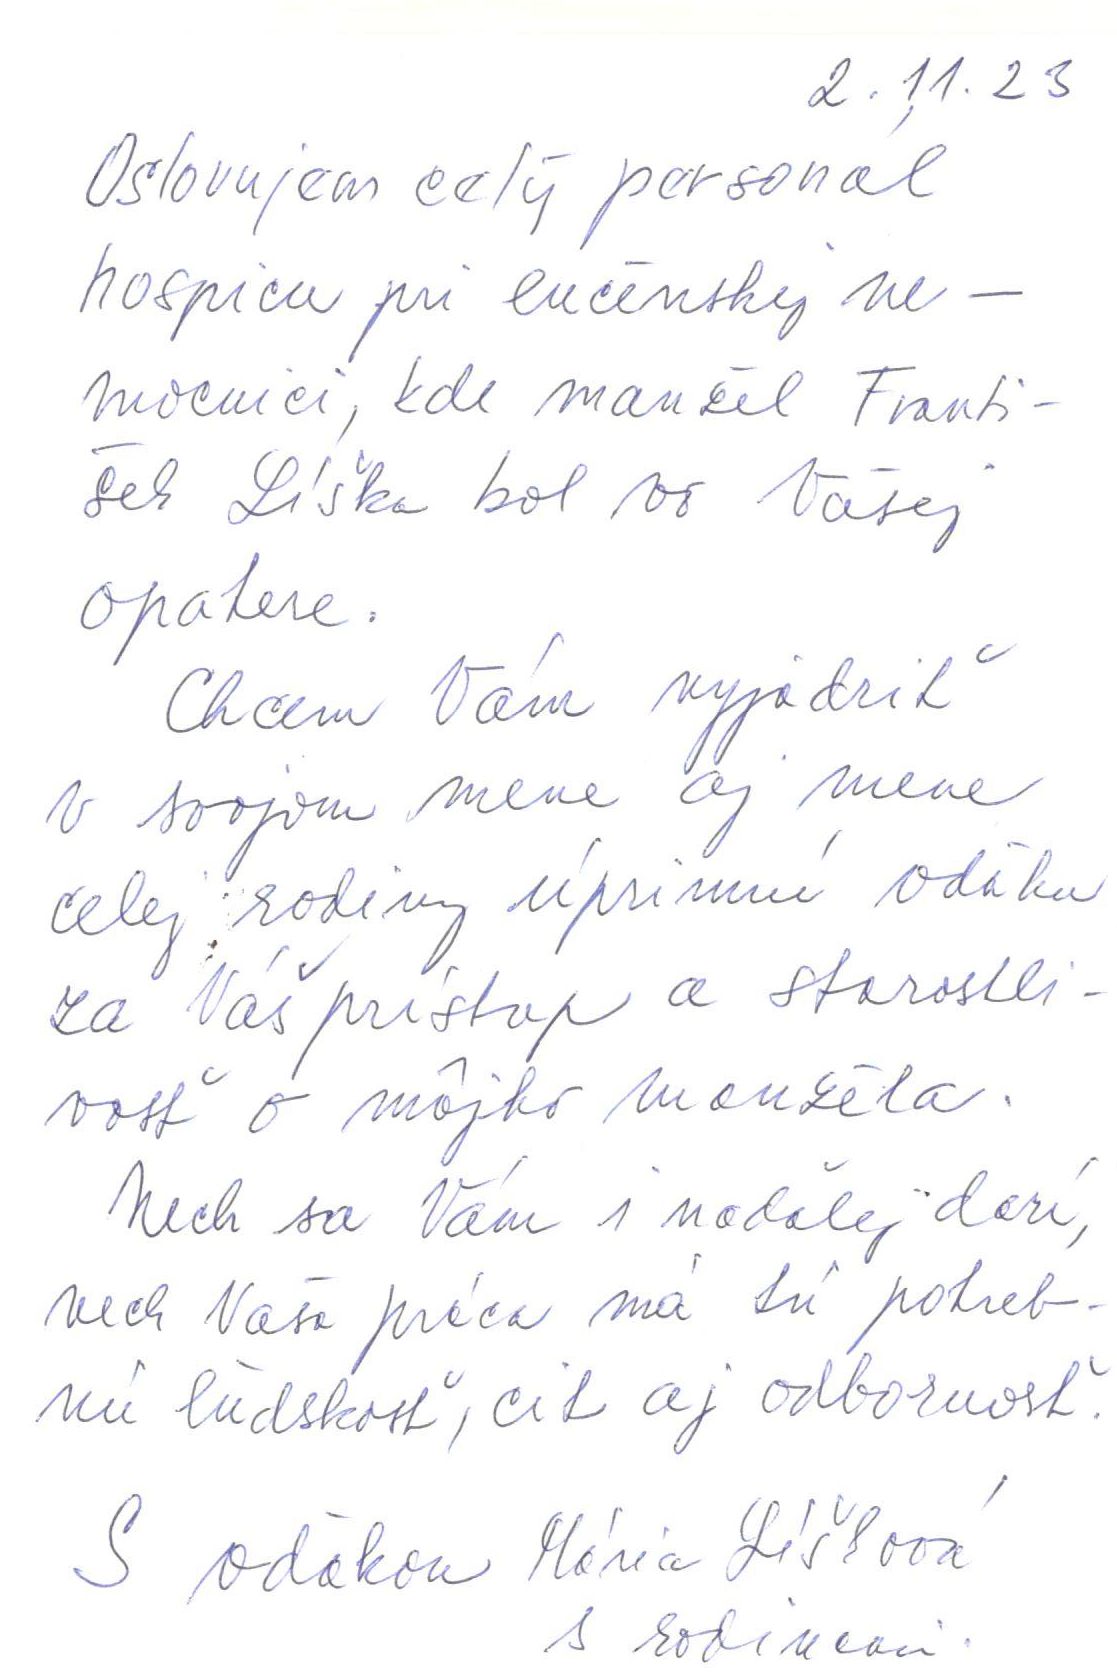 2.11.23
Oslovujem celý personál
hospicu pri lučenskej ne-
mocnici, kde manžel Franti-
šek Líška bol vo Vašej
opatere.
Chcem Vám vyjadriť
v svojom mene aj mene
celej rodiny úprimnú vďaku
za Váš prístup a starostli-
vosť o môjho manžela.
Nech sa Vám i naďalej darí,
nech Vaša práca má tú potreb-
nú ľudskosť, cit aj odbornosť.
S vďakou Mária Líšková
s rodinami.